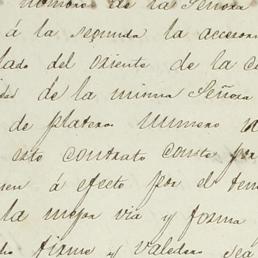 numero de la Señora
á la segunda la accesori
lado del oriente de la c
de la misma Señora
de plateros numero
esto contrato conste por
á efecto por el ter
la mejor via y forma
firme y valedero sea